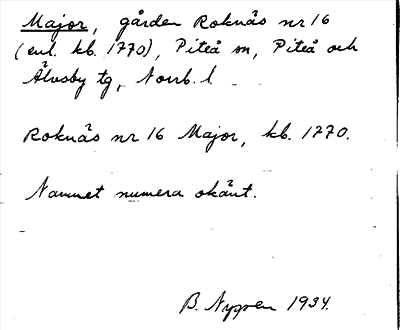 Major, gården Roknäs nr 16
(enl. kb. 1770), Piteå sn, Piteå och
Älvsby tg, Norrb. l.
Roknäs nr 16 Major, kb. 1770.
Namnet numera okänt.
B. Nygren 1934.